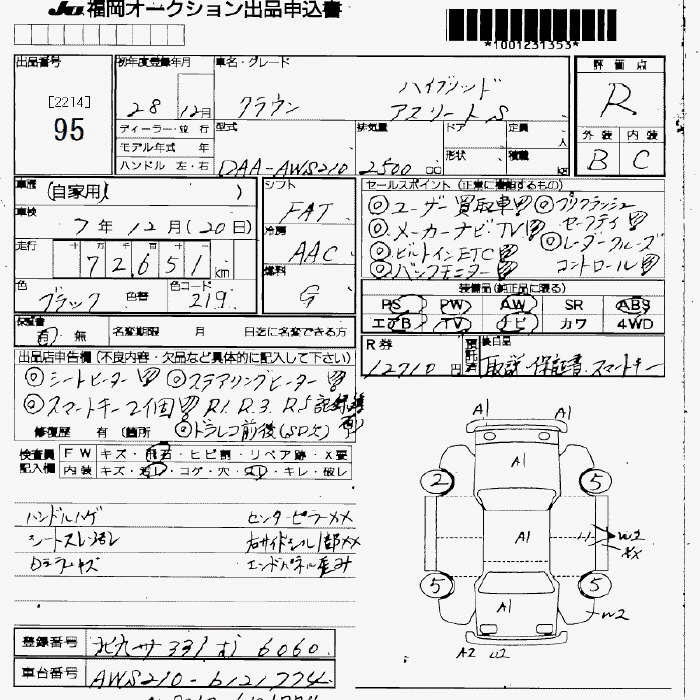 JU福岡オークション出品申込書
*1001231353*
出品番号
[2214]
95
初年度登録年月
28 12月
車名・グレード
ハイブリッド
クラウン アスリートS
評価点
R
外装 内装
B C
ディーラー・並行
モデル年式 年
ハンドル 左・右
型式
DAA-AWS210
排気量
2500 cc
ドア
形状
定員 人
積載 kg
車歴 (自家用)
車検
7年12月(20日)
走行
十 万 千 百 十 一
72,651 km
色 ブラック 色替
色コード 219
シフト
FAT
冷房
AAC
燃料
G
セールスポイント (正常に機能するもの)
◎ユーザー買取車 ◎プリクラッシュ
◎メーカーナビTV セーフティ
◎ビルトインETC ◎レーダークルーズ
◎バックモニター コントロール
装備品(純正品に限る)
PS PW AW SR ABS
エアB TV ナビ カワ 4WD
保証書
有 無
名変期限 月 日迄に名変できる方
R券
12710円
預託済
後日品
取説 保証書 スマートキー
出品店申告欄 (不良内容・欠品など具体的に記入して下さい)
◎シートヒーター ◎ステアリングヒーター
◎スマートキー2個 R1. R3. R5記録簿有り
修復歴 有 (箇所 ◎ドラレコ前後(SD欠)
検査員記入欄
FW キズ・飛石・ヒビ割・リペア跡・X要
内装 キズ・汚レ・コゲ・穴・スレ・キレ・破レ
ハンドルハゲ センターピラーXX
シートスレ汚レ 右サイドシル1部XX
エンドパネル歪み
A1 A1
A1
2 5
A1
W2
XX
5 5
A1
W2
A2 W2
登録番号
北九州 331 も 6060
車台番号
AWS210-6121774